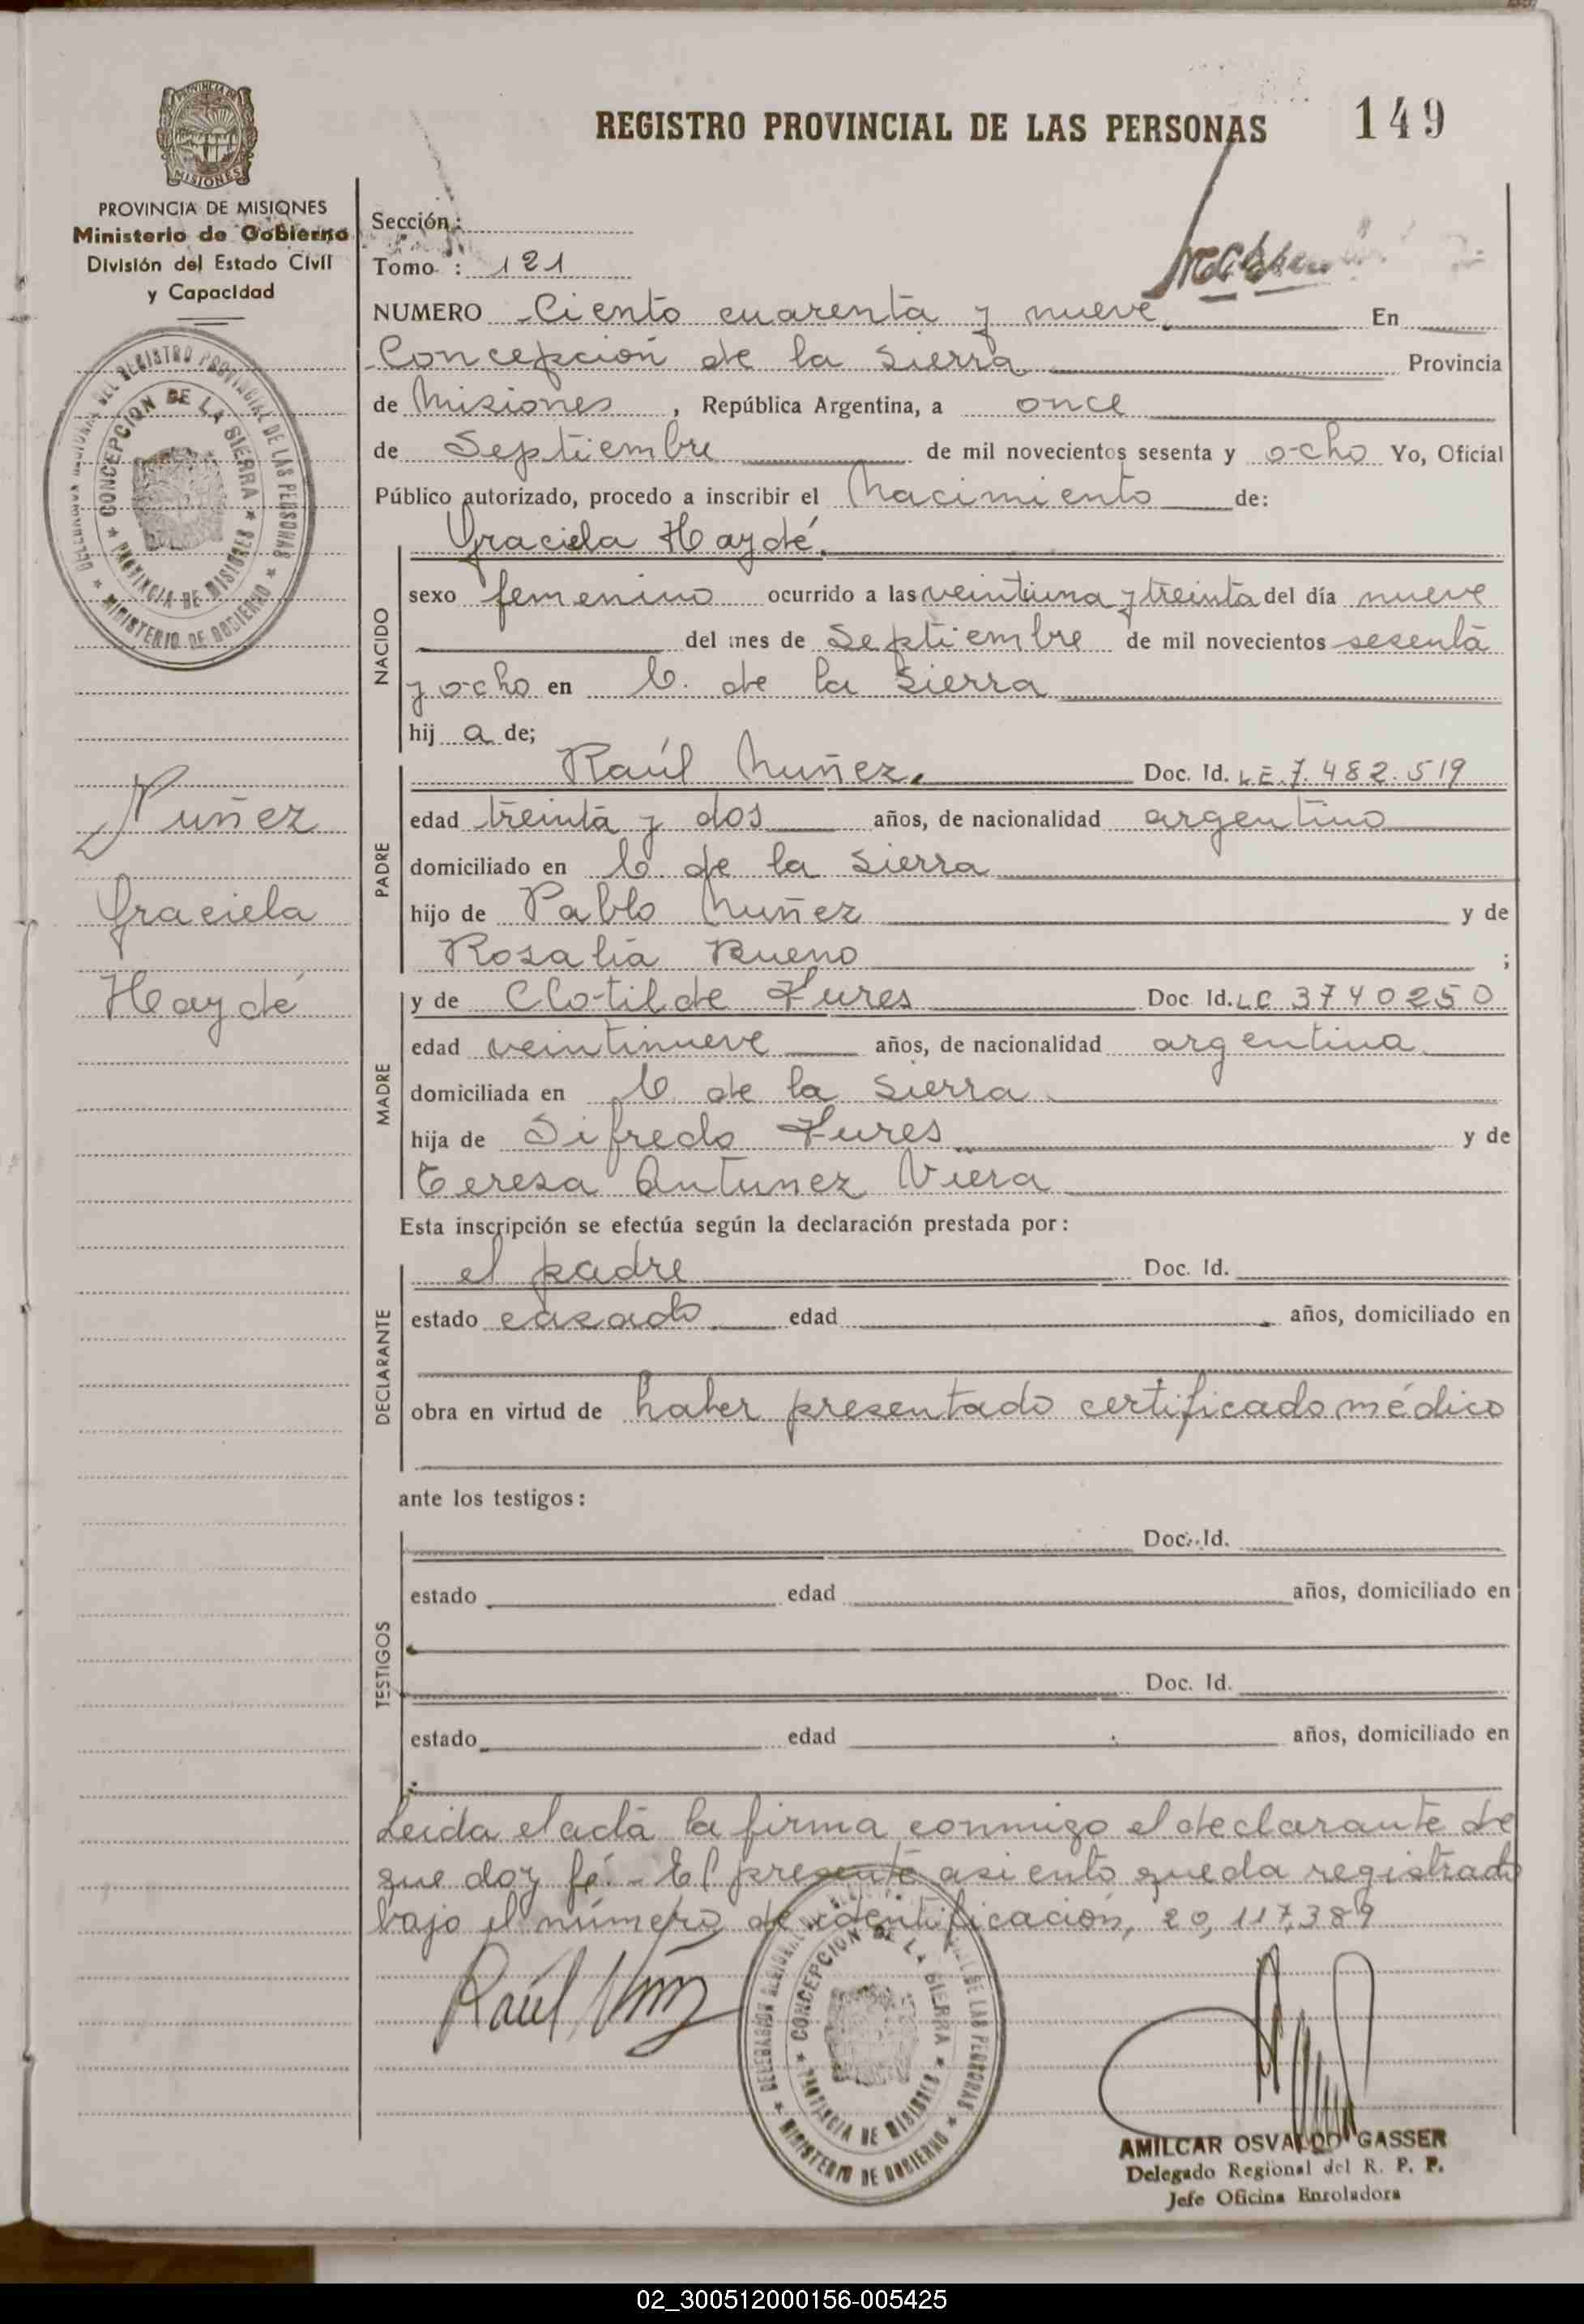 REGISTRO PROVINCIAL DE LAS PERSONAS 149
MISIONES
PROVINCIA DE MISIONES
Ministerio de Gobierno
División del Estado Civil
y Capacidad
Sección:
Tomo : 121
NUMERO Ciento cuarenta y nueve En
Concepción de la Sierra Provincia
de Misiones, República Argentina, a once
de Septiembre de mil novecientos sesenta y ocho Yo, Oficial
Público autorizado, procedo a inscribir el Nacimiento de:
Graciela Haydé.
NACIDO
sexo femenino ocurrido a las veintiuna y treinta del día nueve
del mes de Septiembre de mil novecientos sesenta
y ocho en C. de la Sierra
hij a de;
PADRE
Raúl Nuñez. Doc. Id. LE. 7.482.519
edad treinta y dos años, de nacionalidad argentino
domiciliado en C. de la Sierra
hijo de Pablo Nuñez y de
Rosalía Bueno ;
MADRE
y de Clotilde Fures Doc Id. LC 3740250
edad veintinueve años, de nacionalidad argentina
domiciliada en C. de la Sierra
hija de Sifredo Fures y de
Teresa Antunez Viera
Esta inscripción se efectúa según la declaración prestada por:
DECLARANTE
el padre Doc. Id.
estado casado edad años, domiciliado en
obra en virtud de haber presentado certificado médico
ante los testigos:
TESTIGOS
Doc. Id.
estado edad años, domiciliado en
Doc. Id.
estado edad años, domiciliado en
Leida el acta la firma conmigo el declarante de
que doy fé.- El presente asiento queda registrado
bajo el número de identificación, 20,117,389
Nuñez
Graciela
Haydé
DELEGACION REGIONAL DEL REGISTRO PROVINCIAL DE LAS PERSONAS
CONCEPCION DE LA SIERRA
PROVINCIA DE MISIONES
MINISTERIO DE GOBIERNO
Raúl Nuñez
DELEGACION REGIONAL DEL REGISTRO PROVINCIAL DE LAS PERSONAS
CONCEPCION DE LA SIERRA
PROVINCIA DE MISIONES
MINISTERIO DE GOBIERNO
AMILCAR OSVALDO GASSER
Delegado Regional del R. P. P.
Jefe Oficina Enroladora
02_300512000156-005425